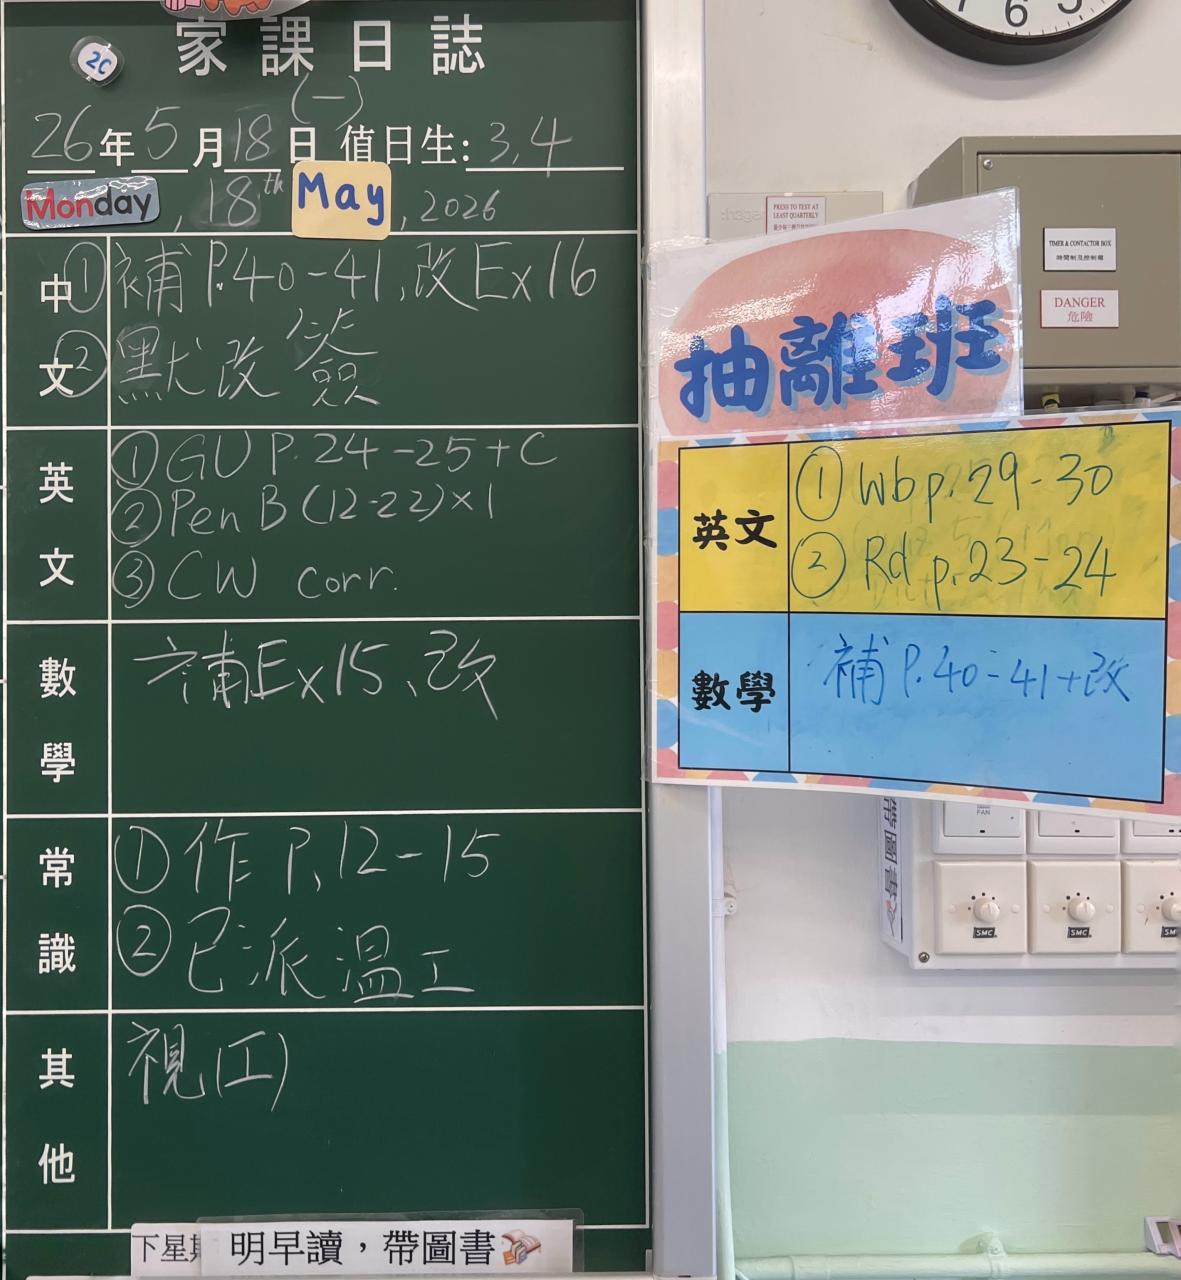 家課日誌
2C
(一)
26年5月18日 值日生: 3,4
Monday, 18th May, 2026
中文
①補P.40-41,改Ex16
②默改 簽
英文
①GU P.24-25+C
②Pen B (12-22)×1
③CW corr.
數學
補Ex15、改
常識
①作P.12-15
②已派溫工
其他
視(工)
下星期
明早讀，帶圖書
7 6 5
PRESS TO TEST AT
LEAST QUARTERLY
TIMER & CONTACTOR BOX
時間制及控制箱
DANGER
危險
抽離班
英文
①Wb p.29-30
②Rd p.23-24
數學
補P.40-41+改
FAN
帶圖書
SMC
SMC
SM